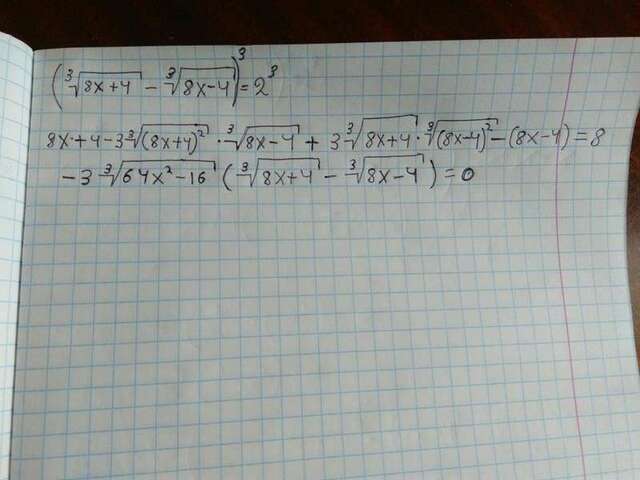 (∛(8x+4) - ∛(8x-4))³ = 2³
8x+4-3∛(8x+4)² · ∛(8x-4) + 3∛(8x+4) · ∛(8x-4)² - (8x-4) = 8
-3∛(64x²-16) (∛(8x+4) - ∛(8x-4)) = 0